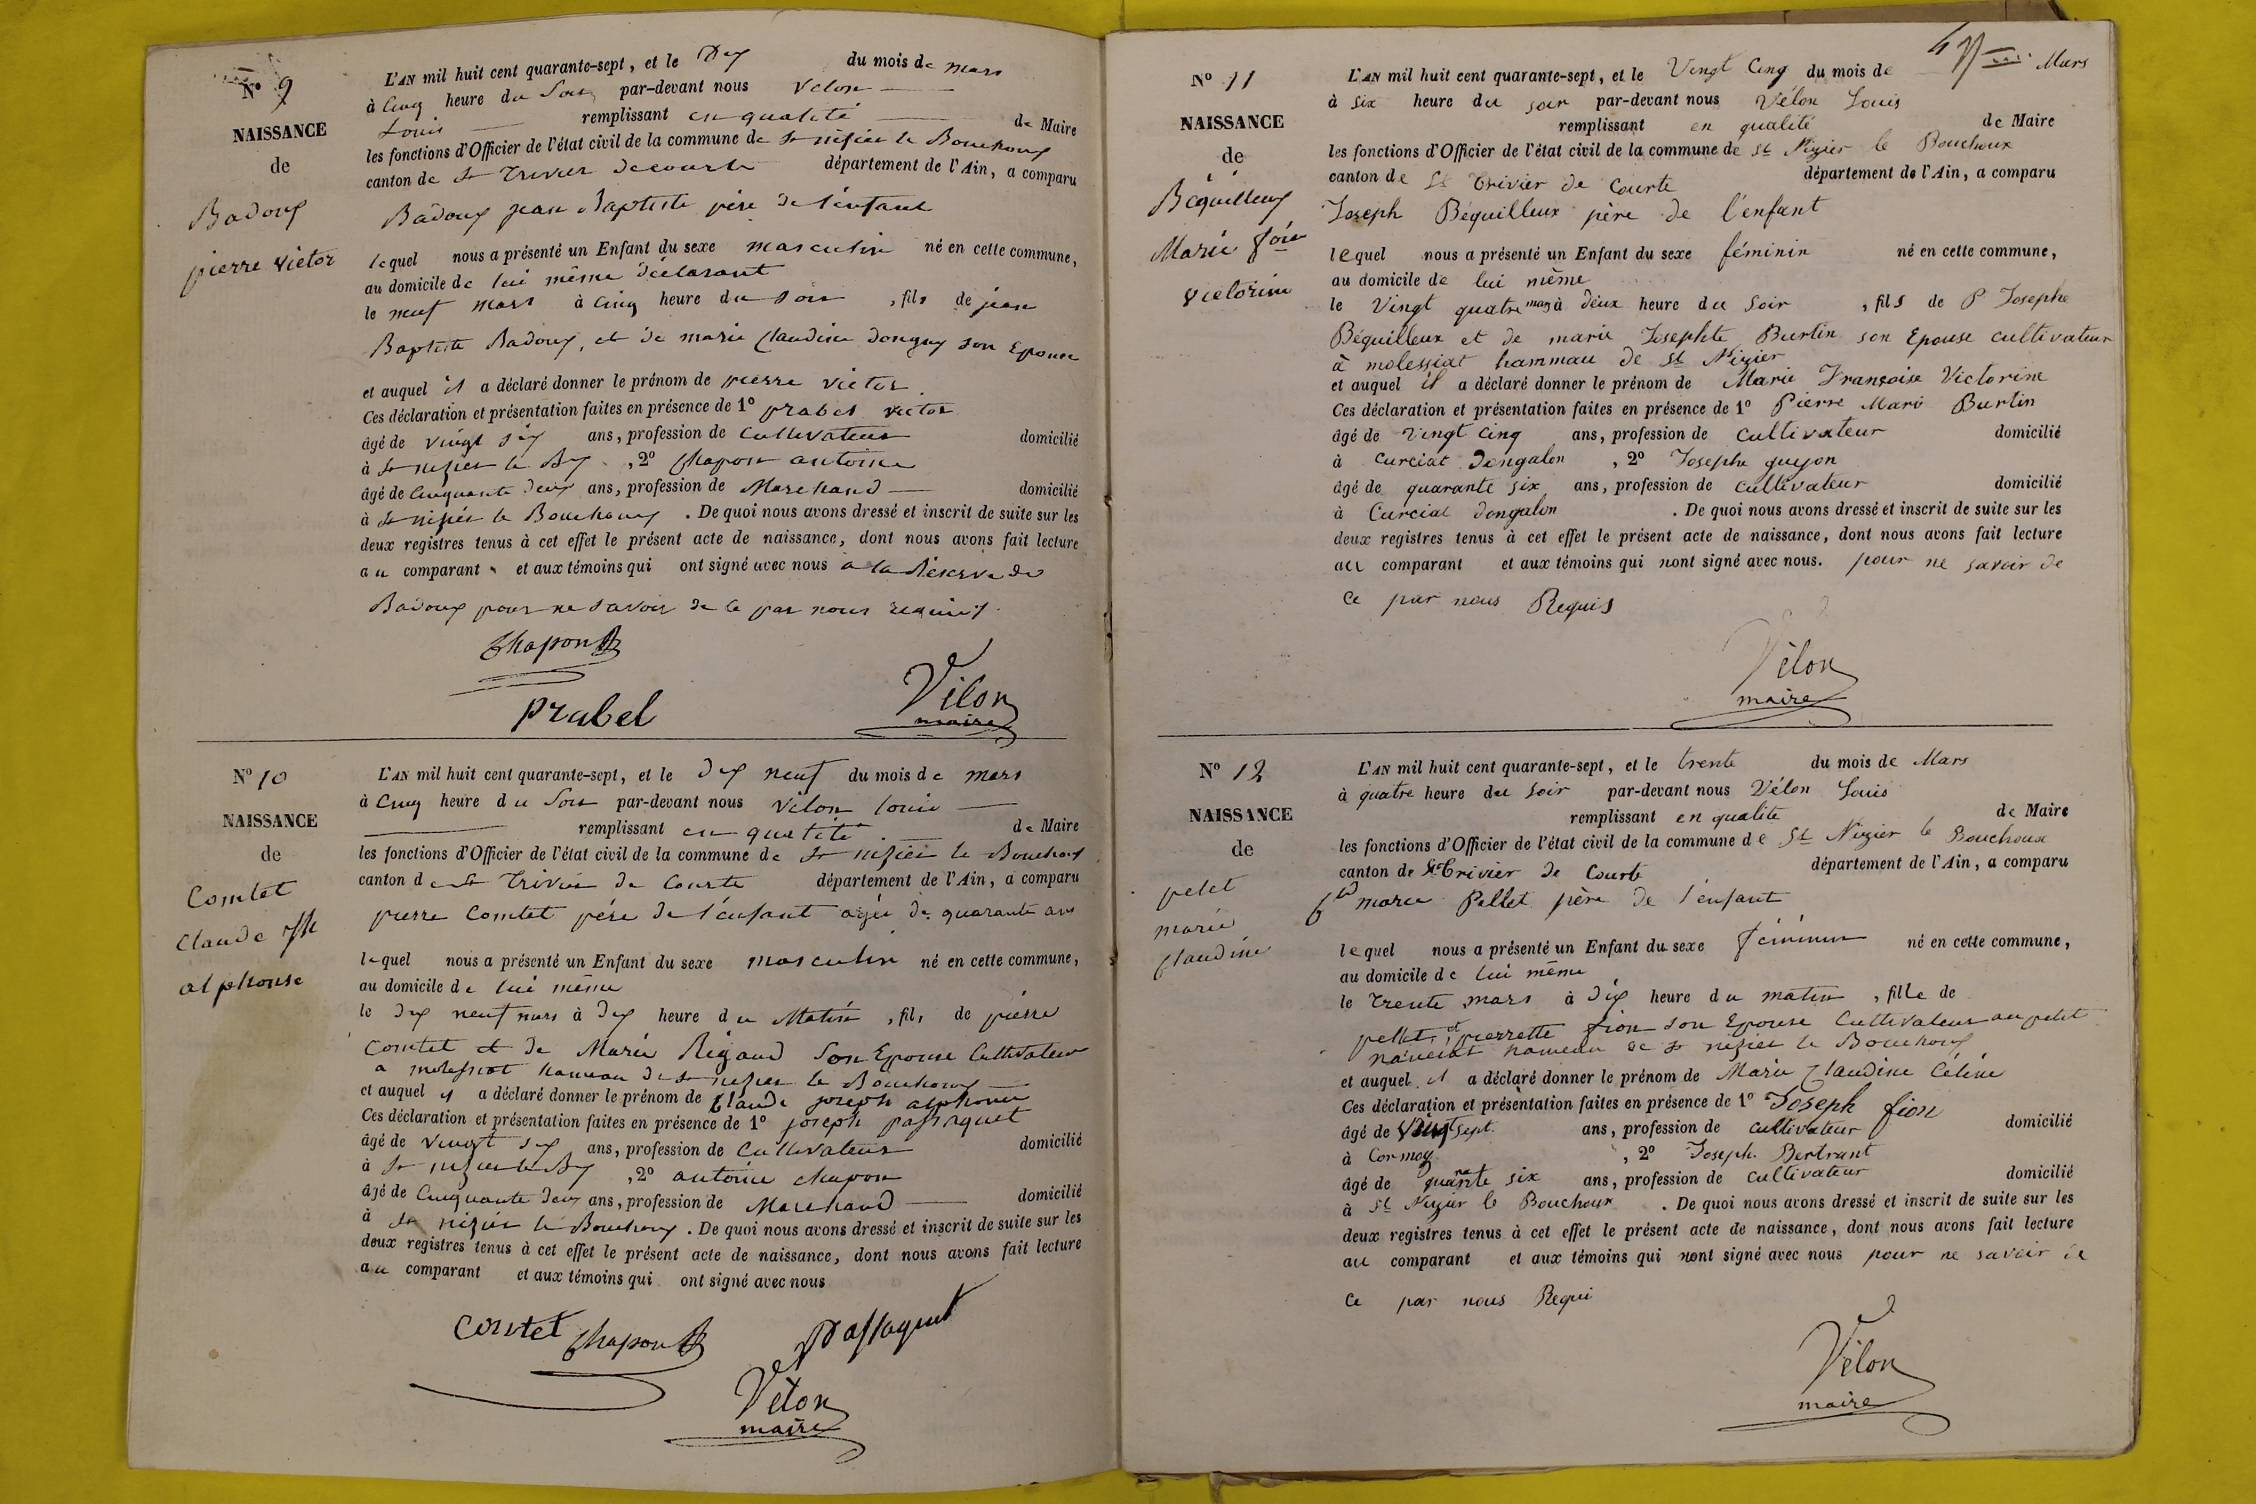 N° 9
NAISSANCE
de
Badoux
pierre victor
L'AN mil huit cent quarante-sept, et le Dix du mois de mars
à Cinq heure du Soir par-devant nous Vélon
Louis remplissant en qualité de Maire
les fonctions d'Officier de l'état civil de la commune de St nizier le Bouchoux
canton de St Trivier decourte département de l'Ain, a comparu
Badoux jean Baptiste père de l'enfant
lequel nous a présenté un Enfant du sexe masculin né en cette commune,
au domicile de lui même déclarant
le neuf mars à Cinq heure du soir, fils de jean
Baptiste Badoux, et de marie Claudine dongny son Epouse
et auquel il a déclaré donner le prénom de pierre victor
Ces déclaration et présentation faites en présence de 1° prabel victor
âgé de vingt six ans, profession de Cultivateur domicilié
à St nizier le Bx, 2° Chapon antoine
âgé de Cinquante deux ans, profession de Marchand domicilié
à St nizier le Bouchoux. De quoi nous avons dressé et inscrit de suite sur les
deux registres tenus à cet effet le présent acte de naissance, dont nous avons fait lecture
au comparant et aux témoins qui ont signé avec nous a la Réserve de
Badoux pour ne savoir de ce par nous requis.
Chapon
prabel
Vélon
maire
N° 10
NAISSANCE
de
Comtet
Claude Jh
alphonse
L'AN mil huit cent quarante-sept, et le dix neuf du mois de mars
à Cinq heure du Soir par-devant nous Vélon Louis
remplissant en qualité de Maire
les fonctions d'Officier de l'état civil de la commune de St nizier le Bouchoux
canton de St Trivier de Courte département de l'Ain, a comparu
pierre Comtet père de l'enfant agée de quarante ans
lequel nous a présenté un Enfant du sexe masculin né en cette commune,
au domicile de lui même
le dix neuf mars à dix heure du Matin, fils de pierre
Comtet et de Marie Rigaud Son Epouse Cultivateur
a molessiat hameau de St nizier le Bouchoux
et auquel il a déclaré donner le prénom de Claude joseph alphonse
Ces déclaration et présentation faites en présence de 1° joseph passaquet
âgé de vingt six ans, profession de Cultivateur domicilié
à St nizier le Bx, 2° antoine chapon
âgé de Cinquante deux ans, profession de Marchand domicilié
à St nizier le Bouchoux. De quoi nous avons dressé et inscrit de suite sur les
deux registres tenus à cet effet le présent acte de naissance, dont nous avons fait lecture
au comparant et aux témoins qui ont signé avec nous
Comtet Chapon Passaquet
Vélon
maire
4
N° 11
NAISSANCE
de
Béquilleux
Marie foise
victorine
L'AN mil huit cent quarante-sept, et le Vingt Cinq du mois de Mars
à six heure du soir par-devant nous Vélon Louis
remplissant en qualité de Maire
les fonctions d'Officier de l'état civil de la commune de St Nizier le Bouchoux
canton de St Trivier de Courte département de l'Ain, a comparu
Joseph Béquilleux père de l'enfant
lequel nous a présenté un Enfant du sexe féminin né en cette commune,
au domicile de lui même
le Vingt quatre mars à deux heure du Soir, fils de P Josephe
Béquilleux et de marie Josephte Burtin son Epouse cultivateur
à molessiat hammau de St Nizier
et auquel il a déclaré donner le prénom de Marie Françoise Victorine
Ces déclaration et présentation faites en présence de 1° Pierre Marie Burtin
âgé de vingt Cinq ans, profession de Cultivateur domicilié
à Curciat dongalon, 2° Josephe guyon
âgé de quarante six ans, profession de Cultivateur domicilié
à Curciat dongalon. De quoi nous avons dressé et inscrit de suite sur les
deux registres tenus à cet effet le présent acte de naissance, dont nous avons fait lecture
au comparant et aux témoins qui nont signé avec nous. pour ne savoir de
ce par nous Requis
Vélon
maire
N° 12
NAISSANCE
de
pelet
marie
Claudine
L'AN mil huit cent quarante-sept, et le trente du mois de Mars
à quatre heure du soir par-devant nous Vélon Louis
remplissant en qualité de Maire
les fonctions d'Officier de l'état civil de la commune de St Nizier le Bouchoux
canton de St Trivier de Courte département de l'Ain, a comparu
marie Pellet père de l'enfant
lequel nous a présenté un Enfant du sexe féminin né en cette commune,
au domicile de lui même
le trente mars à dix heure du matin, fille de
pellet, et pierrette fion son Epouse Cultivateur au petit
hameau de St nizier le Bouchoux
et auquel il a déclaré donner le prénom de Marie Claudine Céline
Ces déclaration et présentation faites en présence de 1° Joseph fion
âgé de Vingt sept ans, profession de cultivateur domicilié
à Cormoz, 2° Joseph Bertrant
âgé de quarante six ans, profession de Cultivateur domicilié
à St Nizier le Bouchoux. De quoi nous avons dressé et inscrit de suite sur les
deux registres tenus à cet effet le présent acte de naissance, dont nous avons fait lecture
au comparant et aux témoins qui nont signé avec nous pour ne savoir de
ce par nous Requi
Vélon
maire